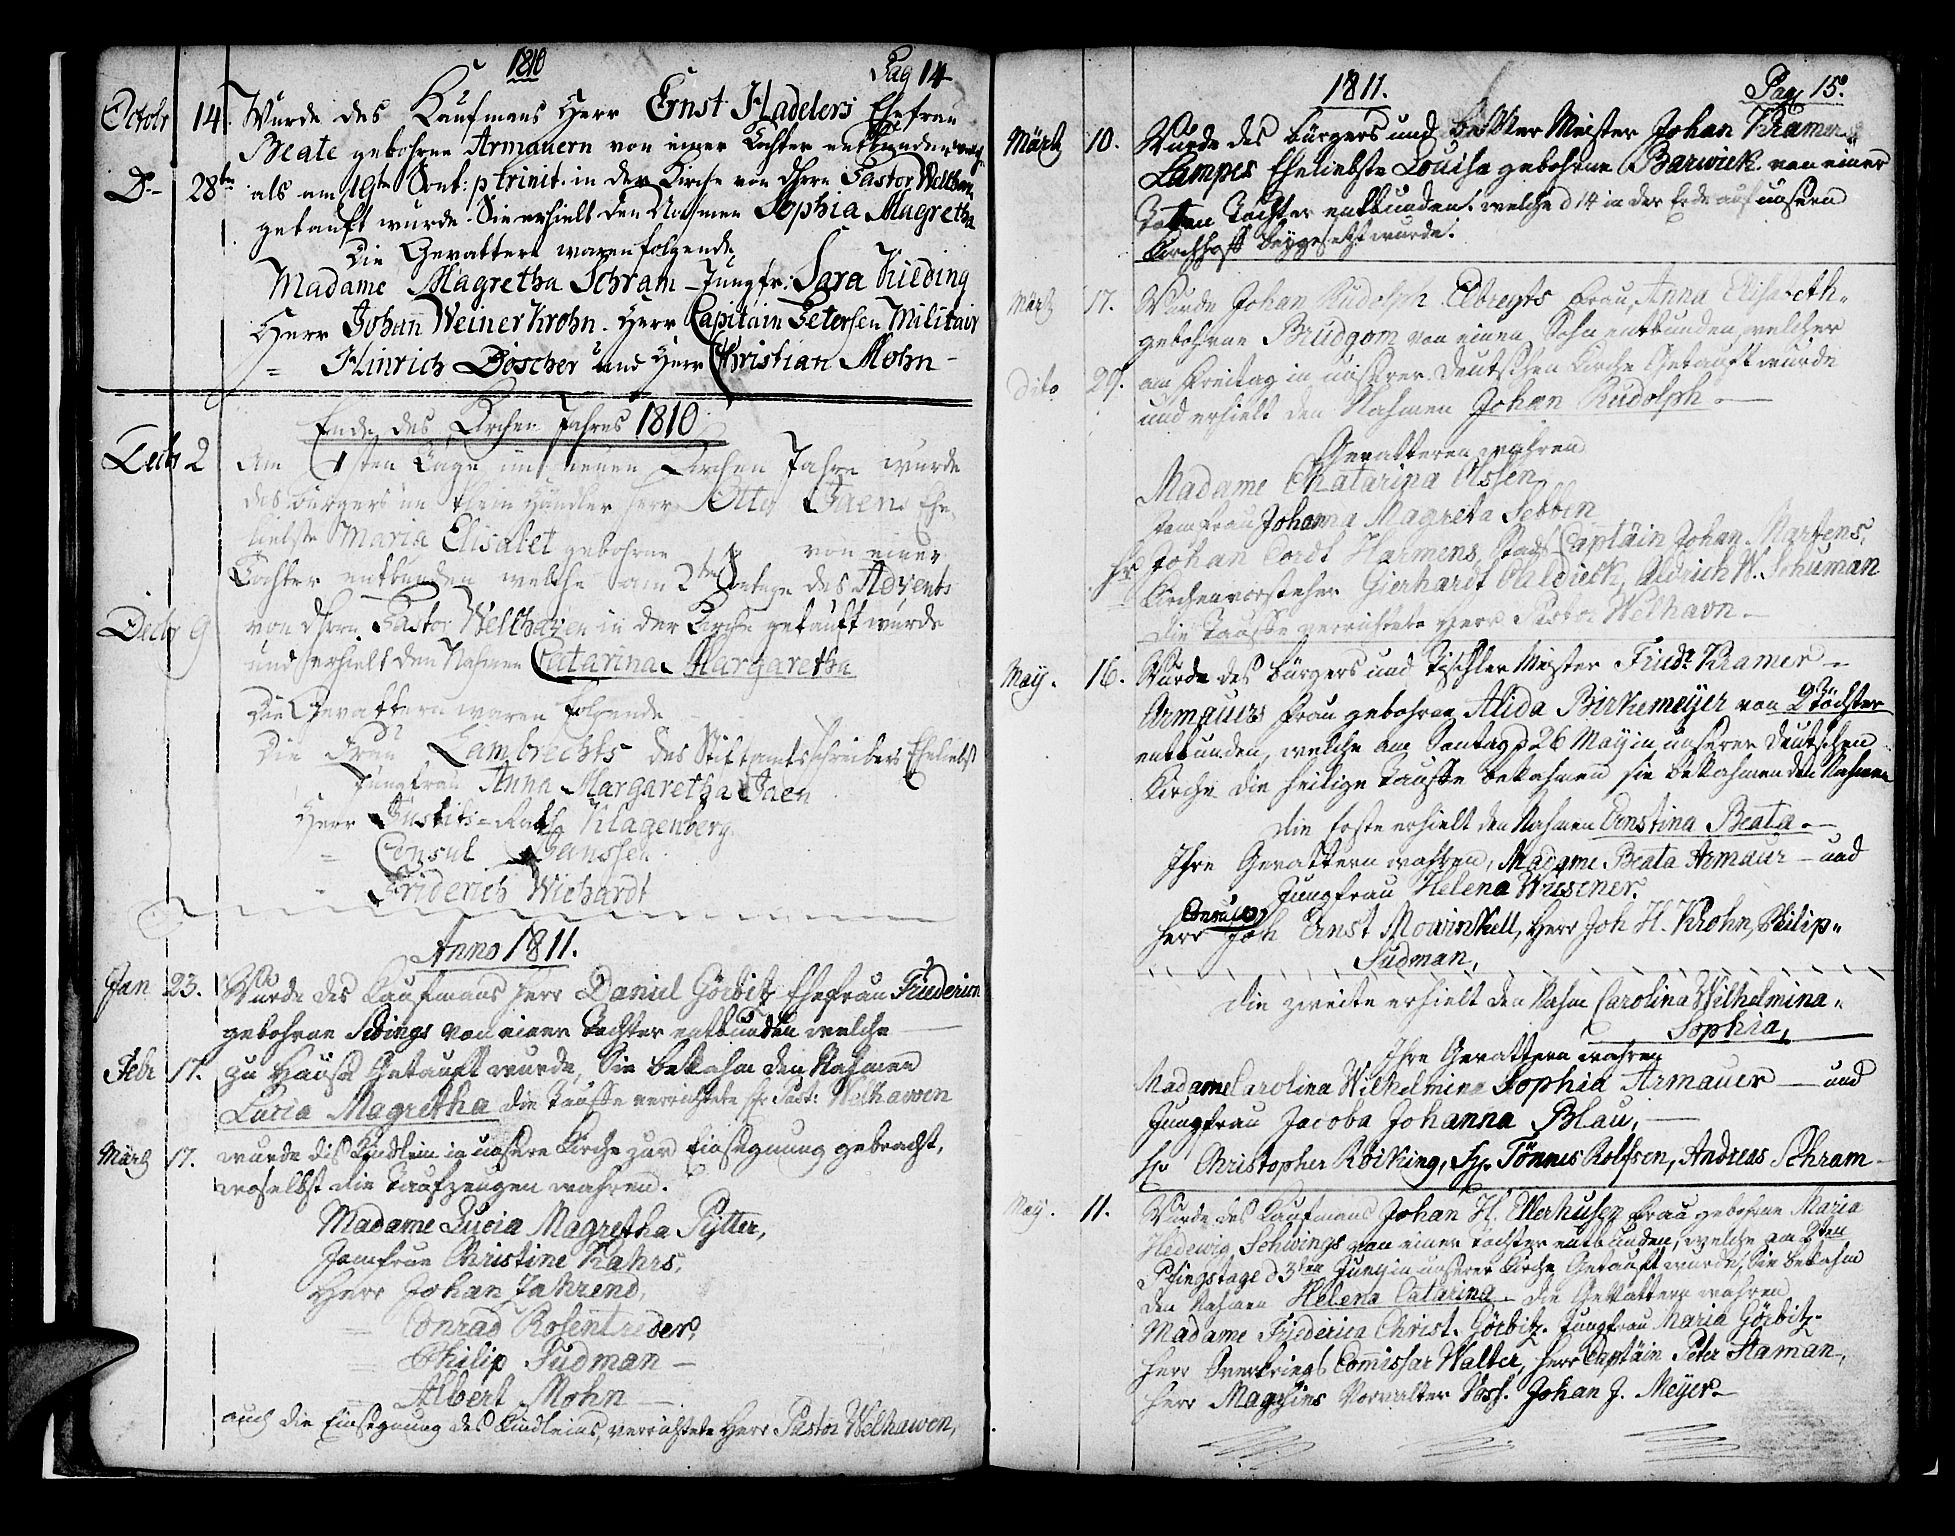 1810
Pag 14
Octobr 14. Wurde des Kaufmans Herr Ernst Hadelers Ehefrau
Beate gebohrne Armauern von einer Tochter entbunden welche
Do- 28ten als am 19ten Sont: p trinit: in der Kirche von dHerrn Pastor Welthaven
getauft wurde. Sie erhielt den Nahmen Sophia Magretha
Die Gevattern waren folgende
Madame Magretha Schram – Jungfr: Sara Kilding
Herr Johan̄ Weiner Krohn. Herr Capitain Petersen Militair
= Hinrich Döscher und Herr Christian Mohn –
Ende des Kirchen Jahres 1810
Decbr 2 Am 1sten Tage im neuen Kirchen Jahre wurde
des Bürgers un Händler Herr Otto Jaens Ehe
liebste Maria Elisabet gebohrne von einer
Tochter entbunden welche am 2ten Sontage des Advents
Decbr 9 von dHerrn Pastor Welthaven in der Kirche getauft wurde
und erhielt den Nahmen Catarina Margaretha
Die Gevattern waren folgende
Die Frau Lambrechts des Stiftamtsschreibers Eheliebst
Jungfrau Anna Margaretha Jaen
Herr Justits-Rath Klagenberg
= Consul Janssen
- Friderich Wichardt
Anno 1811.
Jan 23. Wurde des Kaufmans Herr Daniel Görbitz Ehefrau Friderica
gebohrne Sedings von einer Tochter entbunden welche
Febr 17. zu Hause Getauft wurde, Sie bekahm den Nahmen
Lucia Magretha die Tauffe verrichtete Hr Past: Welhawen
Märtz 17. wurde dis Kindlein in unsere Kirche zur Einsegnung gebracht,
woselbst die Taufzeugen wahren.
Madame Lucia Magretha Pytter,
Jomfrue Christine Kahrs,
Herr Johan Fahrend,
= Conrad Rosentreder,
= Philip Sudman –
= Albert Mohn –
auch die Einsegnung des Kindleins, verrichtete Herr Pastor Welhawen,
1811.
Pag 15.
Märtz 10. Wurde des Bürgers und Bekker Meister Johan Kramer
Lampes Eheliebste Louisa gebohrne Barwick von einer
Toten Tochter entbunden. welche d 14 in der Erde auf unsern
Kirchhoff beygesetzt wurde.
Märtz 17. Wurde Johan Rudolph Elbregts Frau, Anna Elisabeth
gebohrne Brüdgom von einen Sohn entbunden welcher
dito 29. am Freitag in unserer Deutschen Kirche Getauft wurde
und erhielt den Nahmen Johan Rudolph.
Gevatteren wahren
Madame Chatarina Olssen
Jomfrau Johanna Magreta Sebben
Hr Johan Cordt Harmens, Stads Captäin Johan Martens,
= Kirchenvorsteher Gierhardt Oldieck, Aldrich W. Schuman
Die Tauffe verrichtete Herr Pastor Welhavn –
May. 16. Wurde des Bürgers und Tischler Meister Fridr Kramer
Armauers Frau gebohrne Alida Birkemeyer von 2 Töchter
entbunden, welche am Sontag d 26 May in unserer Deutschen
Kirche die heilige Tauffe bekahmen sie bekahmen den Nahmen
die Erste erhielt den Nahmen Ernstina Beata
Ihre Gevattern wahren, Madame Beata Armaur – und
Jungfrau Helena Wüsener.
Consul
Herr Joh Ernst Mowinkell, Herr Joh H. Krohn, Philip
Sudman,
Die zweite erhielt den Nahm Carolina Wilhelmina
Sophia,
Ihre Gevattern wahren
Madame Carolina Wilhelmina Sophia Armauer – und
Jungfrau Jacoba Johanna Blau,
Hr Christopher Röicking, Hr Tönnes Rolfsen, Andreas Schram
May. 11. Wurde des Kaufmans Johan H. Ellerhusen Frau gebohrne Maria
Hedewig Schwings von einer Tochter entbunden, welche am 2ten
Pfingstage d 3ten Juny in unserer Kirche Getauft wurde, Sie bekahm
den Nahmen Helena Catarina. Die Gevattern wahren
Madame Friederica Christ. Görbitz. Jungfrau Maria Görbitz
Herr Overkriegs Comissar Walter, Herr Captäin Peter Haman,
Herr Magazins Vorwalter Voss. Johan J. Meyer